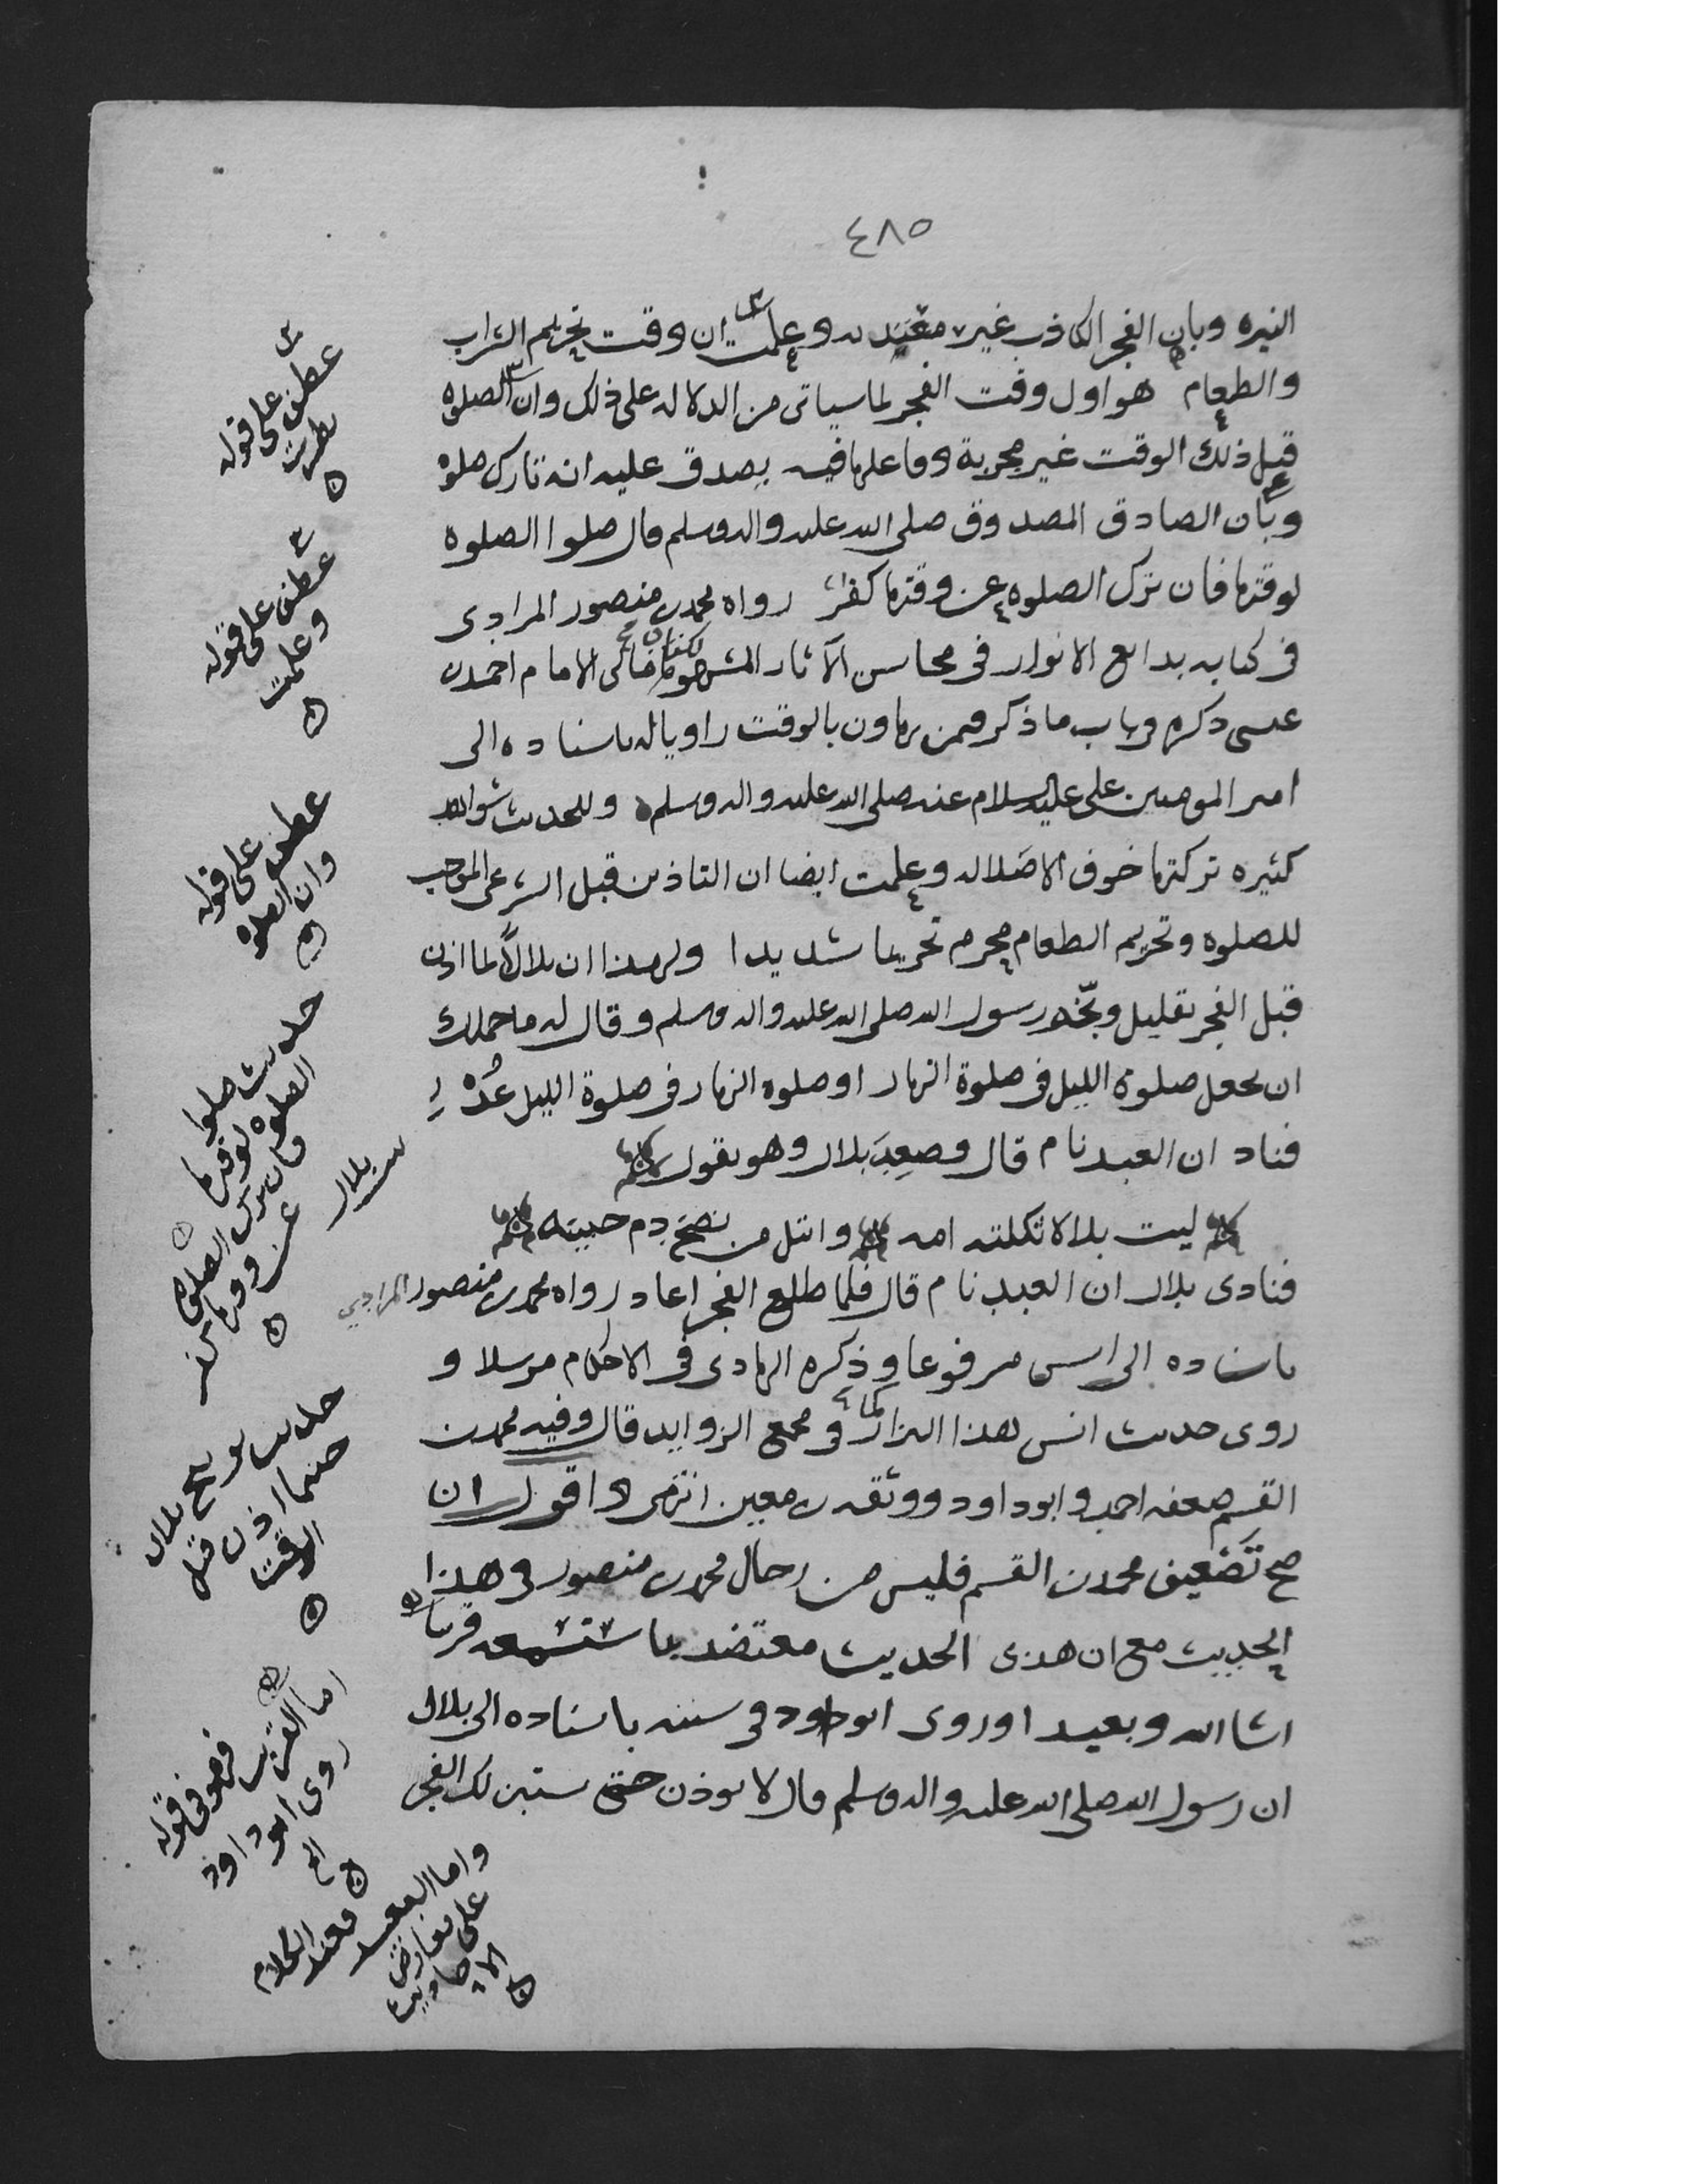 ٤٨٥
النيره وبان الفجر الكاذب غير معتد به وعلمت ان وقت تحريم الشراب
والطعام هو اول وقت الفجر لما سياتى من الدلاله على ذلك وان الصلوه
قبل ذلك الوقت غير مجزية وفاعلها فيه يصدق عليه انه تارك صلوه
وبان الصادق المصدوق صلى الله عليه واله وسلم قال صلوا الصلوه
لوقتها فان ترك الصلوه عن وقتها كفر رواه محمد بن منصور المرادى
فى كتابه بدايع الانوار فى محاسن الآثار المشهور بامالى الامام احمد بن
عيسى ذكره فى باب ما ذكر فمن يهاون بالوقت راويا له باسناده الى
امير المومنين على عليه السلام عنه صلى الله عليه واله وسلم وللحديث شواهد
كثيره تركتها خوف الاطاله وعلمت ايضا ان التاذين قبل الشرعى الموجب
للصلوه وتحريم الطعام محرم تحريما شديدا ولهذا ان بلالاً لما اذن
قبل الفجر بقليل وبخه رسول الله صلى الله عليه واله وسلم وقال له ما حملك
ان تجعل صلوة الليل فى صلوة النهار او صلوه النهار فى صلوة الليل عُدْ
فناد ان العبد نام قال وصعِدَ بلال وهو يقول
ليت بلالا ثكلته امه وابتل من نضح دم جبينه
فنادى بلال ان العبد نام قال فلما طلع الفجر اعاد رواه محمد بن منصور المرادي
باسناده الى انس مرفوعا وذكره الهادى فى الاحكام مرسلا و
روى حديث انس هذا البزار كما فى مجمع الزوايد قال وفيه محمد بن
القسم ضعفه احمد وابو داود ووثقه بن معين انتهى واقول ان
صح تَضعيف محمد بن القسم فليس من رجال محمد بن منصور فى هذا
الحديث مع ان هذى الحديث معتضد بما ستسمعه قريبا
انشا الله وبعيدا وروى ابو داود فى سننه باسناده الى بلال
ان رسول الله صلى الله عليه واله وسلم قال لا توذن حتى يستبين لك الفجر
عطف على قوله
عطف على قوله
وعلمت
عطف على قوله
وان الصلوه
حديث صلوا
الصلوه لوقتها
فان ترك الصلوه
عن وقتها كفر
بلال
حديث توبيخ بلال
حينما اذن قبل
الوقت
اما القريب فهو فى قوله
روى ابو داود
الخ
واما البعيد فعند الكلام
على تعارض
الاحاديث